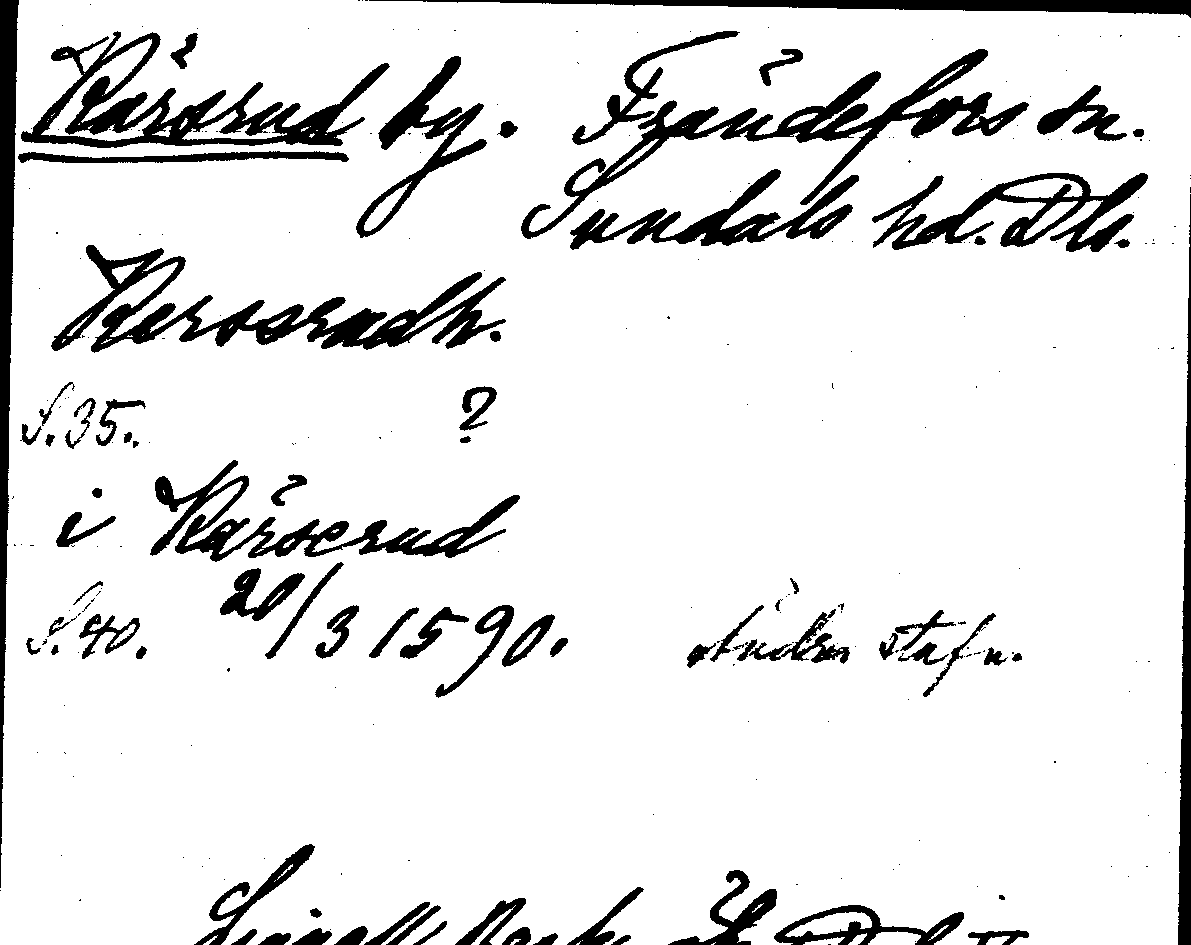 Kärsrud by. Frändefors sn.
Sundals hd. Dls.
Kerssrudh.
S. 35. ?
i Kärserud
S. 40. 20/3 1590. Änden stafn.